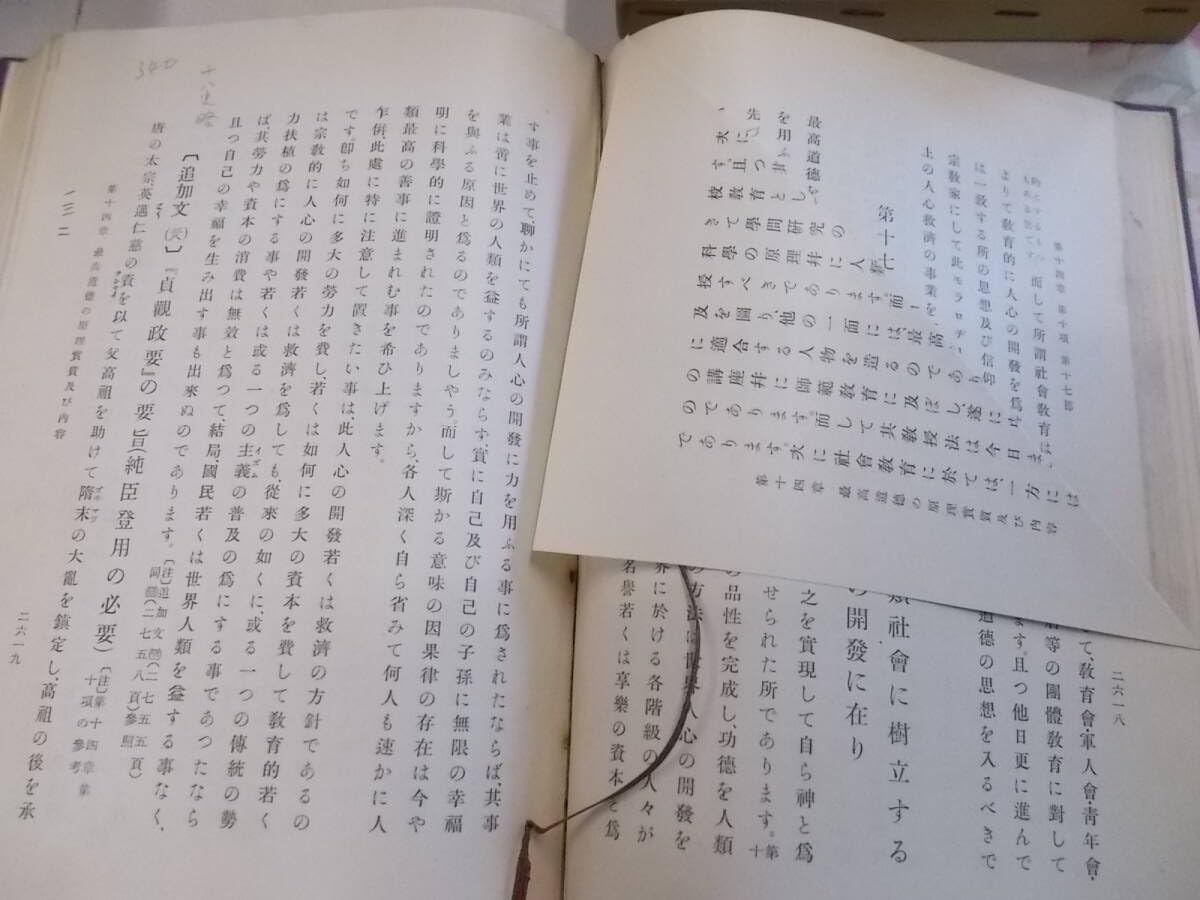 第十四章 第十項 第十七節
而して所謂社會敎育は、
よりて敎育的に人心の開發を爲
は一致する所の思想及び信仰
宗敎家にして此モラロヂ
上の人心救濟の事業を、
第十七
最高道德
を用ふ
先
次に
す。且つ
校敎育とし
きて學問硏究の
科學の原理幷に人
授すべきであります。而
及を圖り、他の一面には、最高
に適合する人物を造るのであり
の講座幷に師範敎育に及ぼし、遂に
のであります。而して其敎授法は今日ま
であります。次に社會敎育に於ては、一方には
第十四章 最高道德の原理實質及び內容
二六一八
て、敎育會・軍人會・靑年會・
等の團體敎育に對して
ます。且つ他日更に進んで
道德の思想を入るべきで
社會に樹立する
の開發に在り
之を實現して自ら神と爲
せられた所であります。第十
の品性を完成し、功德を人類
の方法は世界人心の開發を
界に於ける各階級の人々が
名譽若くは享樂の資本と爲
す事を止めて、聊かにても所謂人心の開發に力を用ふる事に爲されたならば、其事
業は啻に世界の人類を益するのみならず、實に自己及び自己の子孫に無限の幸福
を與ふる原因と爲るのでありましやう。而して斯かる意味の因果律の存在は今や
明に科學的に證明されたのでありますから、各人深く自ら省みて何人も速かに人
類最高の善事に進まれむ事を希ひ上げます。
乍併、此處に特に注意して置きたい事は、此人心の開發若くは救濟の方針であるの
です。卽ち如何に多大の勞力を費し、若くは如何に多大の資本を費して敎育的若く
は宗敎的に人心の開發若くは救濟を爲しても、從來の如くに、或る一つの傳統の勢
力扶植の爲にする事や若くは或る一つの主義イズムの普及の爲にする事であつたなら
ば、其勞力や資本の消費は無效と爲つて、結局、國民若くは世界人類を益する事なく、
且つ自己の幸福を生み出す事も出來ぬのであります。〔注〕追加文(二七五五頁)同(二七五八頁)參照
〔追加文(天)〕『貞觀政要』の要旨(純臣登用の必要)〔注〕第十四章第十項の參考
唐の太宗英邁仁慈の資を以て父高祖を助けて隋末ズヰマツの大亂を鎭定し、高祖の後を承
第十四章 最高道德の原理實質及び內容
二六一九
340
十八史略